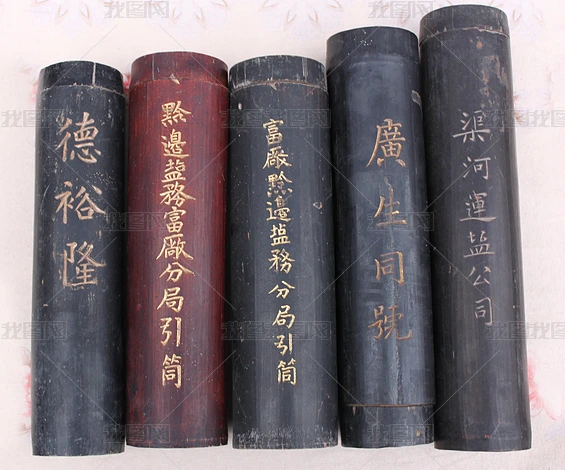 德裕隆
黔邊盐務富厰分局引筒
富厰黔邊盐務分局引筒
廣生同號
渠河運盐公司
我图网